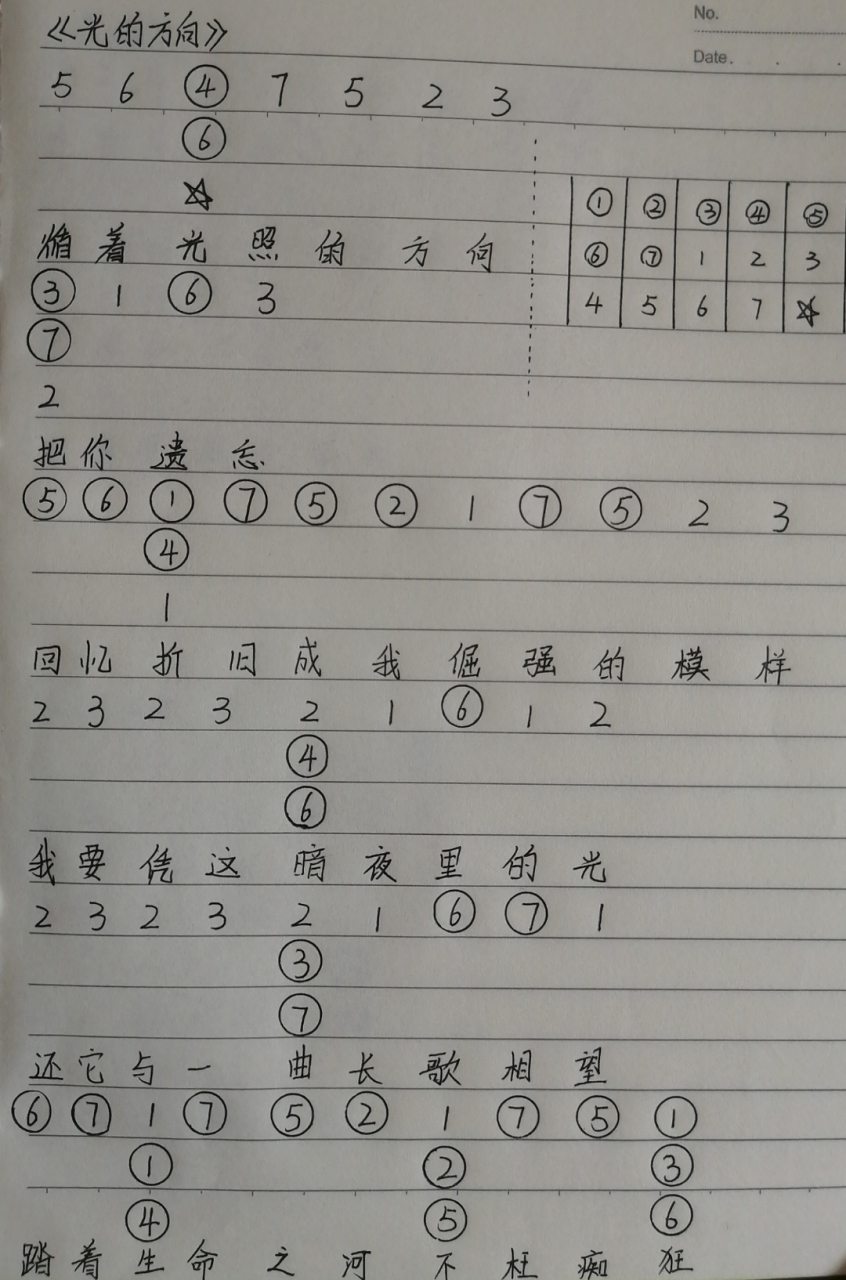 《光的方向》
No.
Date.
5 6 ④ 7 5 2 3
⑥
☆
① ② ③ ④ ⑤
⑥ ⑦ 1 2 3
4 5 6 7 ☆
循着光照的方向
③ 1 ⑥ 3
⑦
2
把你遗忘
⑤ ⑥ ① ⑦ ⑤ ② 1 ⑦ ⑤ 2 3
④
1
回忆折旧成我倔强的模样
2 3 2 3 2 1 ⑥ 1 2
④
⑥
我要凭这暗夜里的光
2 3 2 3 2 1 ⑥ ⑦ 1
③
⑦
还它与一曲长歌相望
⑥ ⑦ 1 ⑦ ⑤ ② 1 ⑦ ⑤ ①
① ② ③
④ ⑤ ⑥
踏着生命之河不枉痴狂